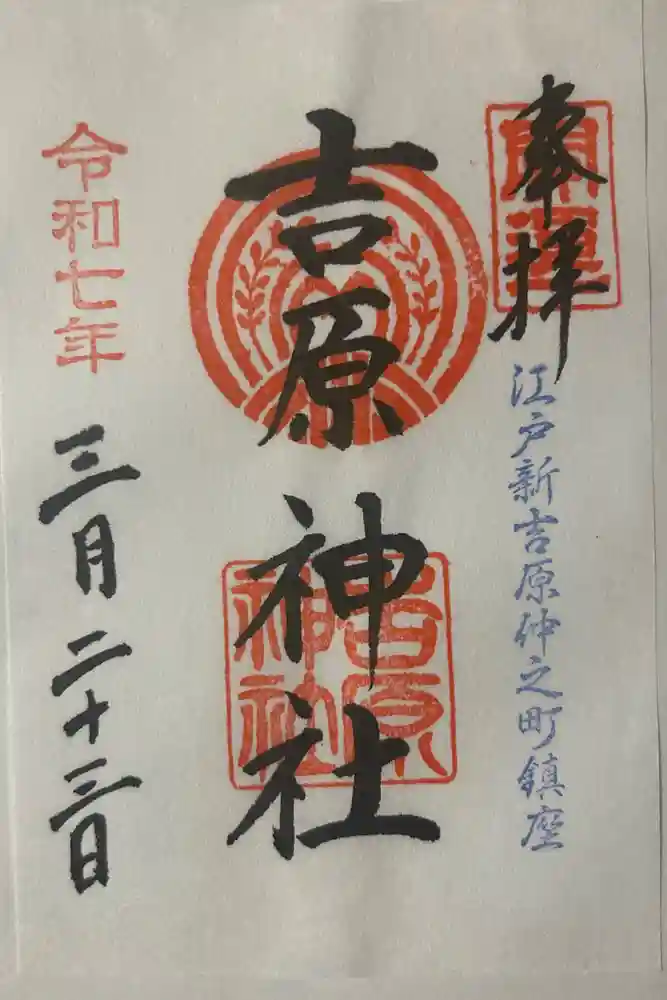 奉拝
開運
江戸新吉原仲之町鎮座
吉原神社
吉原
神社
令和七年
三月二十三日